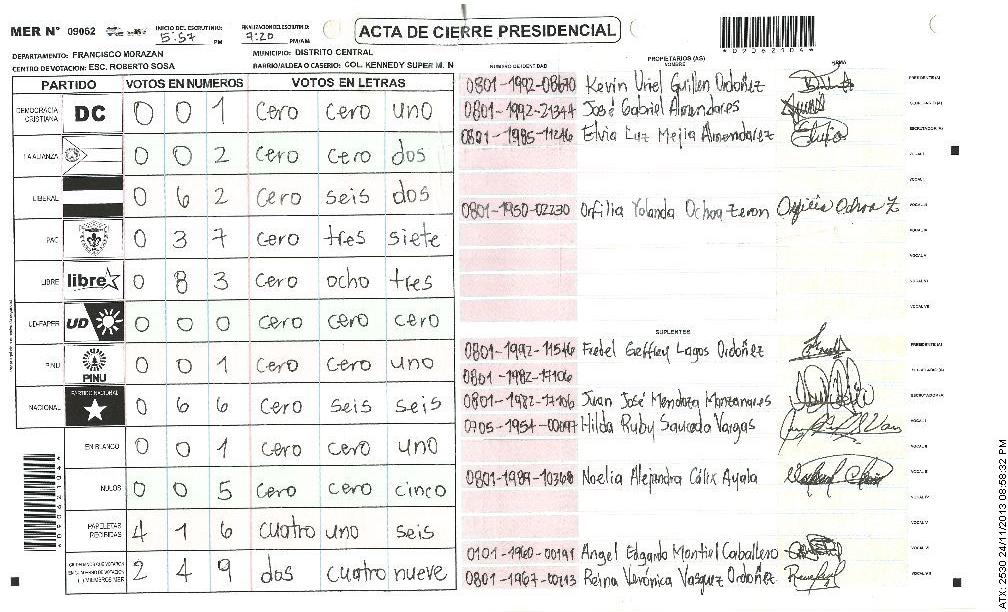 MER N° 09062
INICIO DEL ESCRUTINIO:
5:57 PM
FINALIZACION ESCRUTINIO:
7:20 PM/AM
ACTA DE CIERRE PRESIDENCIAL
DEPARTAMENTO: FRANCISCO MORAZAN
MUNICIPIO: DISTRITO CENTRAL
CENTRO DE VOTACION: ESC. ROBERTO SOSA
BARRIO/ALDEA O CASERIO: COL. KENNEDY SUPER M. N
PARTIDO VOTOS EN NUMEROS VOTOS EN LETRAS
DEMOCRACIA CRISTIANA DC 0 0 1 cero cero uno
LA ALIANZA 0 0 2 cero cero dos
LIBERAL 0 6 2 cero seis dos
PAC 0 3 7 cero tres siete
LIBRE libre 0 8 3 cero ocho tres
UD-FAPER UD 0 0 0 cero cero cero
PINU PINU 0 0 1 cero cero uno
NACIONAL PARTIDO NACIONAL 0 6 6 cero seis seis
EN BLANCO 0 0 1 cero cero uno
NULOS 0 0 5 cero cero cinco
PAPELETAS RECIBIDAS 4 1 6 cuatro uno seis
2 4 9 dos cuatro nueve
NUMERO DE IDENTIDAD
PROPIETARIOS (AS)
NOMBRE
FIRMA
Kevin Uriel Guillen Ordoñez PRESIDENTE(A)
0801-1992-21344 José Gabriel Almendares SECRETARIO(A)
0801-1985-11246 Elvia Luz Mejia Almendarez ESCRUTADOR(A)
VOCAL I
VOCAL II
0801-1950-02230 Orfilia Yolanda Ochoa Zeron Orfilia Ochoa Z VOCAL III
VOCAL IV
VOCAL V
VOCAL VI
VOCAL VII
SUPLENTES
0801-1992-11546 Fredel Geffrey Lagos Ordoñez PRESIDENTE(A)
0801-1982-17106 SECRETARIO(A)
0801-1982-17106 Juan José Mendoza Manzanares ESCRUTADOR(A)
Hilda Ruby Saucedo Vargas VOCAL I
VOCAL II
Noelia Alejandra Cálix Ayala VOCAL III
VOCAL IV
VOCAL V
Angel Edgardo Montiel Caballero VOCAL VI
Reina Verónica Vasquez Ordoñez VOCAL VII
*09062104*
*09062104*
ATX: 2530 24/11/2013 08:58:32 PM